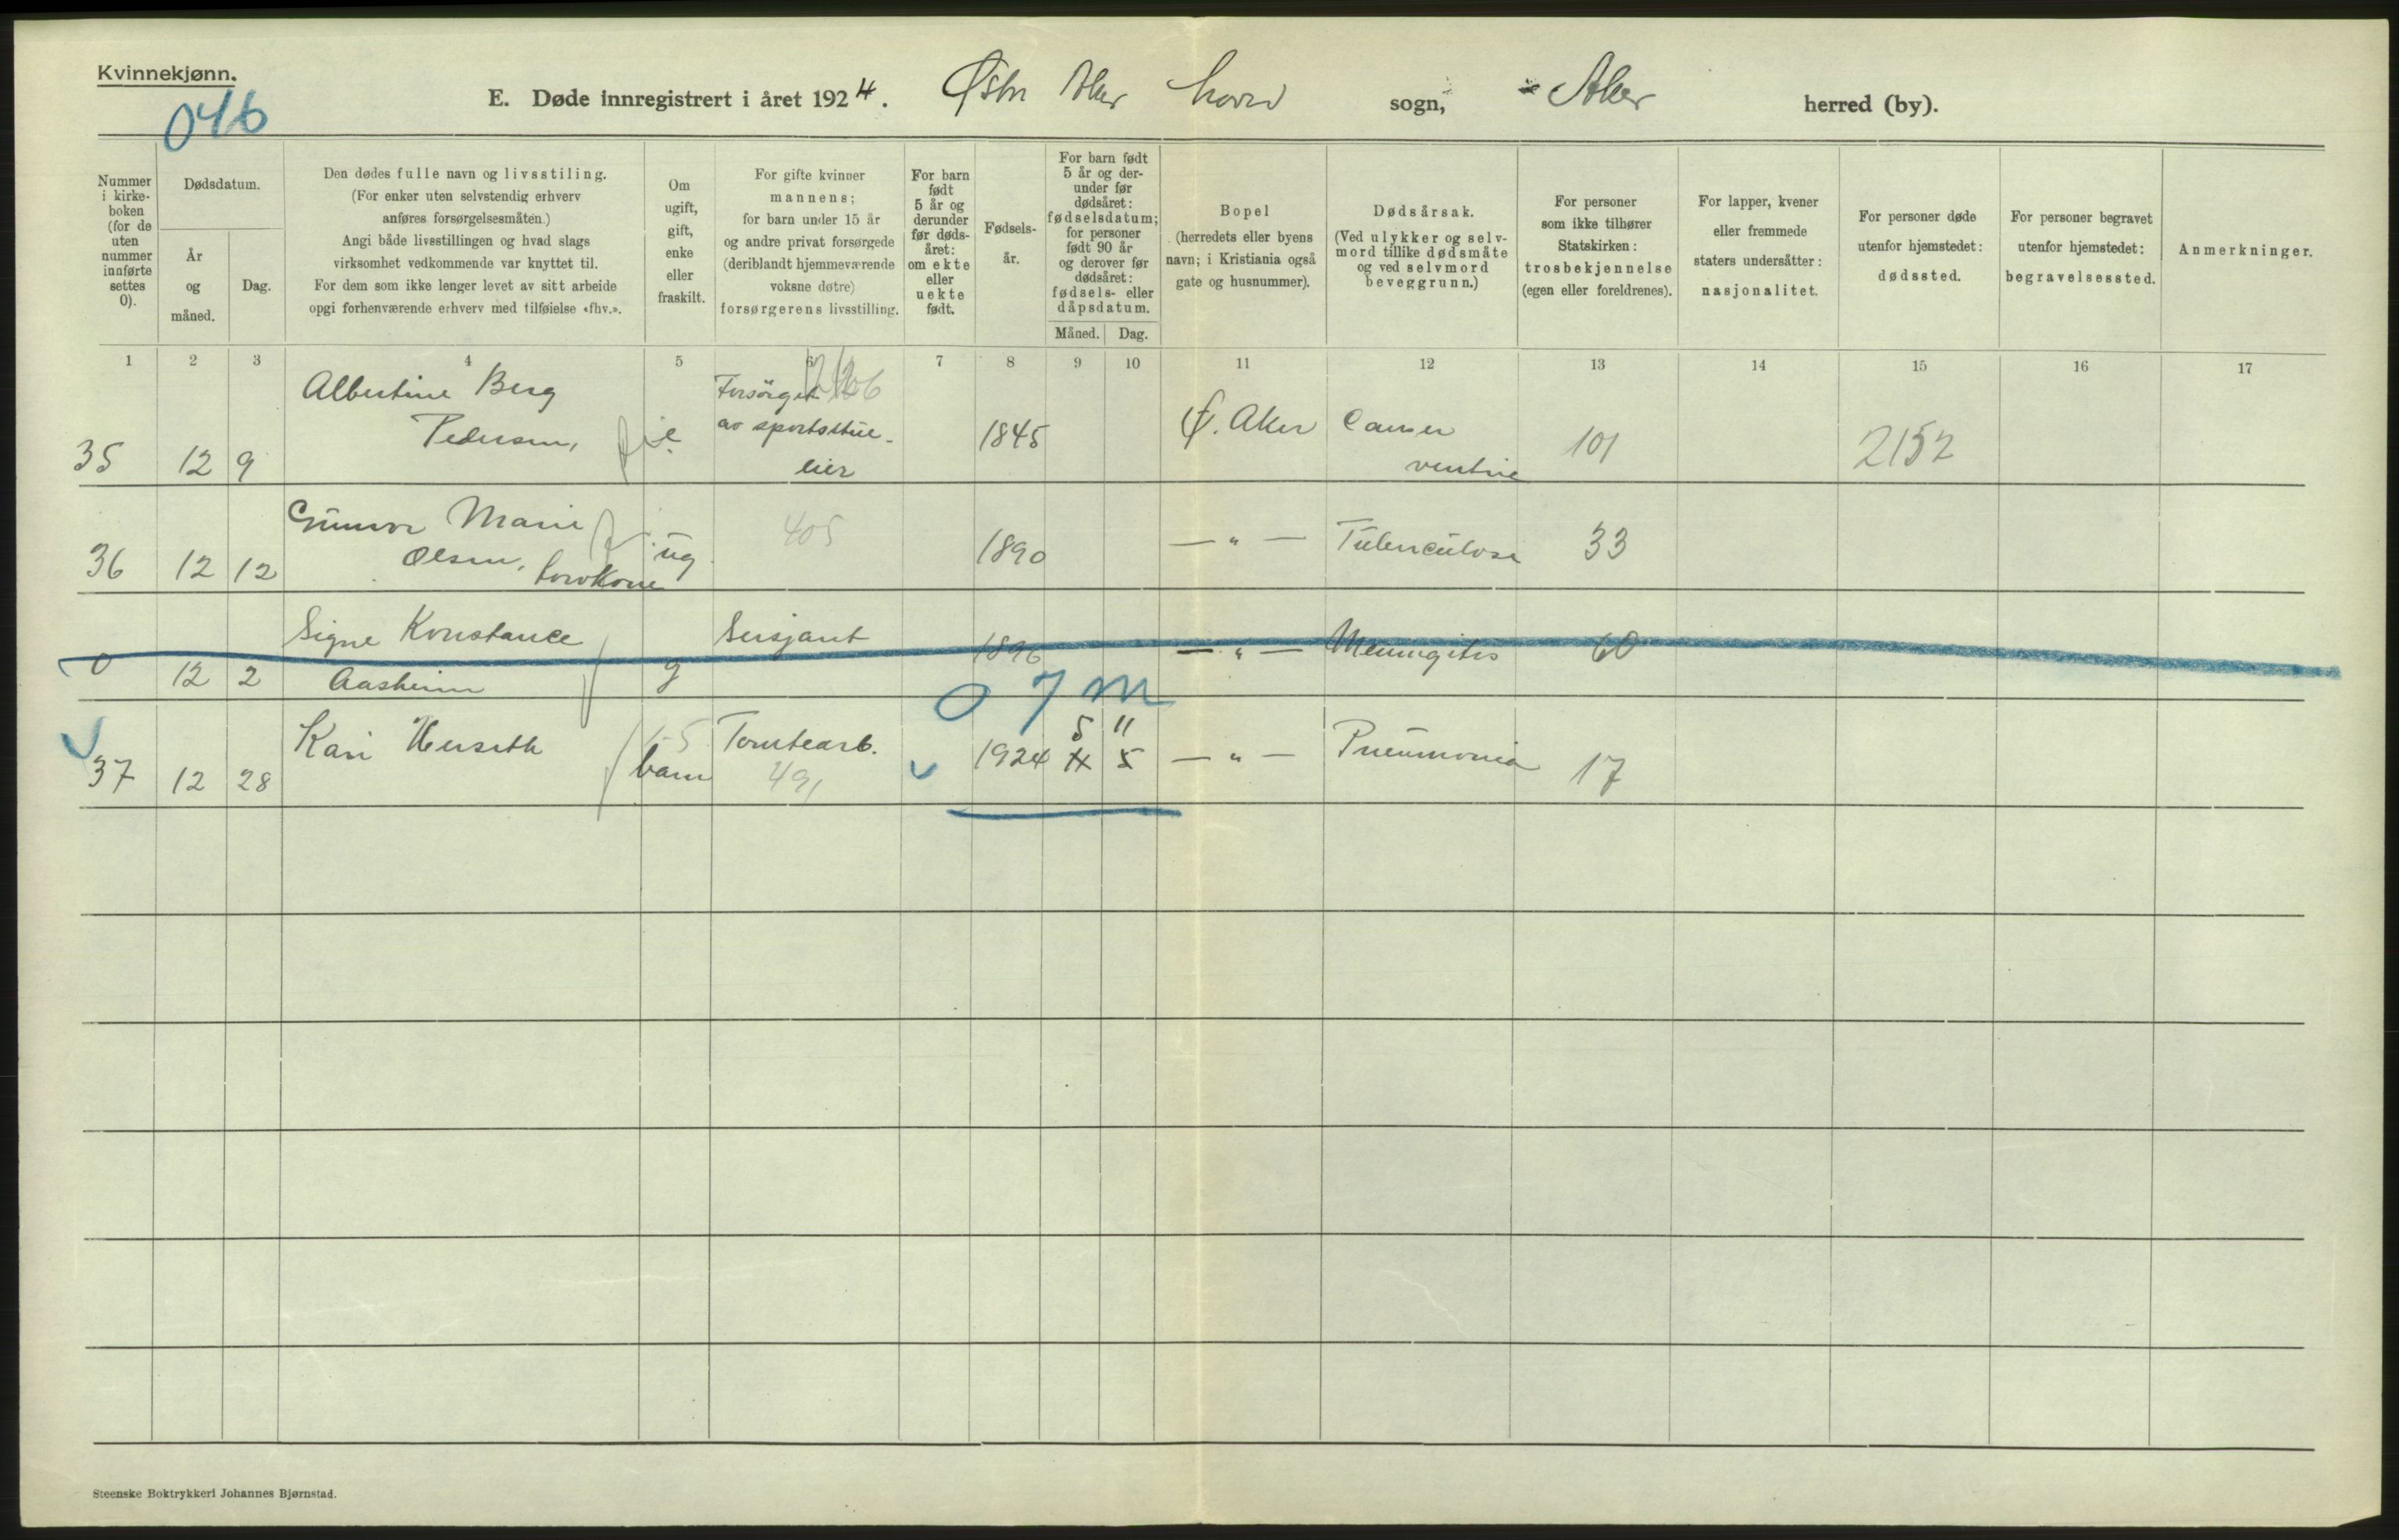 Kvinnekjønn.
046
E. Døde innregistrert i året 1924. Østre Aker hoved sogn, Aker herred (by).
Nummer i kirke-boken (for de uten nummer innførte settes 0).
Dødsdatum.
År og måned.
Dag.
Den dødes fulle navn og livsstiling.
(For enker uten selvstendig erhverv
anføres forsørgelsesmåten.)
Angi både livsstillingen og hvad slags
virksomhet vedkommende var knyttet til.
For dem som ikke lenger levet av sitt arbeide
opgi forhenværende erhverv med tilføielse «fhv.».
Om
ugift,
gift,
enke
eller
fraskilt.
For gifte kvinner
mannens;
for barn under 15 år
og andre privat forsørgede
(deriblandt hjemmeværende
voksne døtre)
forsørgerens livsstilling.
For barn
født
5 år og
derunder
før døds-
året:
om ekte
eller
uekte
født.
Fødsels-
år.
For barn født
5 år og der-
under før
dødsåret:
fødselsdatum;
for personer
født 90 år
og derover før
dødsåret:
fødsels- eller
dåpsdatum.
Måned. Dag.
Bopel
(herredets eller byens
navn; i Kristiania også
gate og husnummer).
Dødsårsak.
(Ved ulykker og selv-
mord tillike dødsmåte
og ved selvmord
beveggrunn.)
For personer
som ikke tilhører
Statskirken:
trosbekjennelse
(egen eller foreldrenes).
For lapper, kvener
eller fremmede
staters undersåtter:
nasjonalitet.
For personer døde
utenfor hjemstedet:
dødssted.
For personer begravet
utenfor hjemstedet:
begravelsessted.
Anmerkninger.
1 2 3 4 5 6 7 8 9 10 11 12 13 14 15 16 17
Albertine Berg
Pedersen,
35 12 9 e Forsörget
av sportsstue-
eier
1845 Ø. Aker Cancer
ventrie
101 2152
Gunvor Marie
Olsen,
36 12 12 ug 405 1890 — " — Tuberculose 33
Signe Konstance
Aasheim
0 12 2 g Sersjant 1896 — " — Meningitis 60
0 7 m
Kari Herseth
37 12 28 1-5
barn
Tomtearb.
491
5 11
1924 4 5 — " — Pneumonia 17
Steenske Boktrykkeri Johannes Bjørnstad.